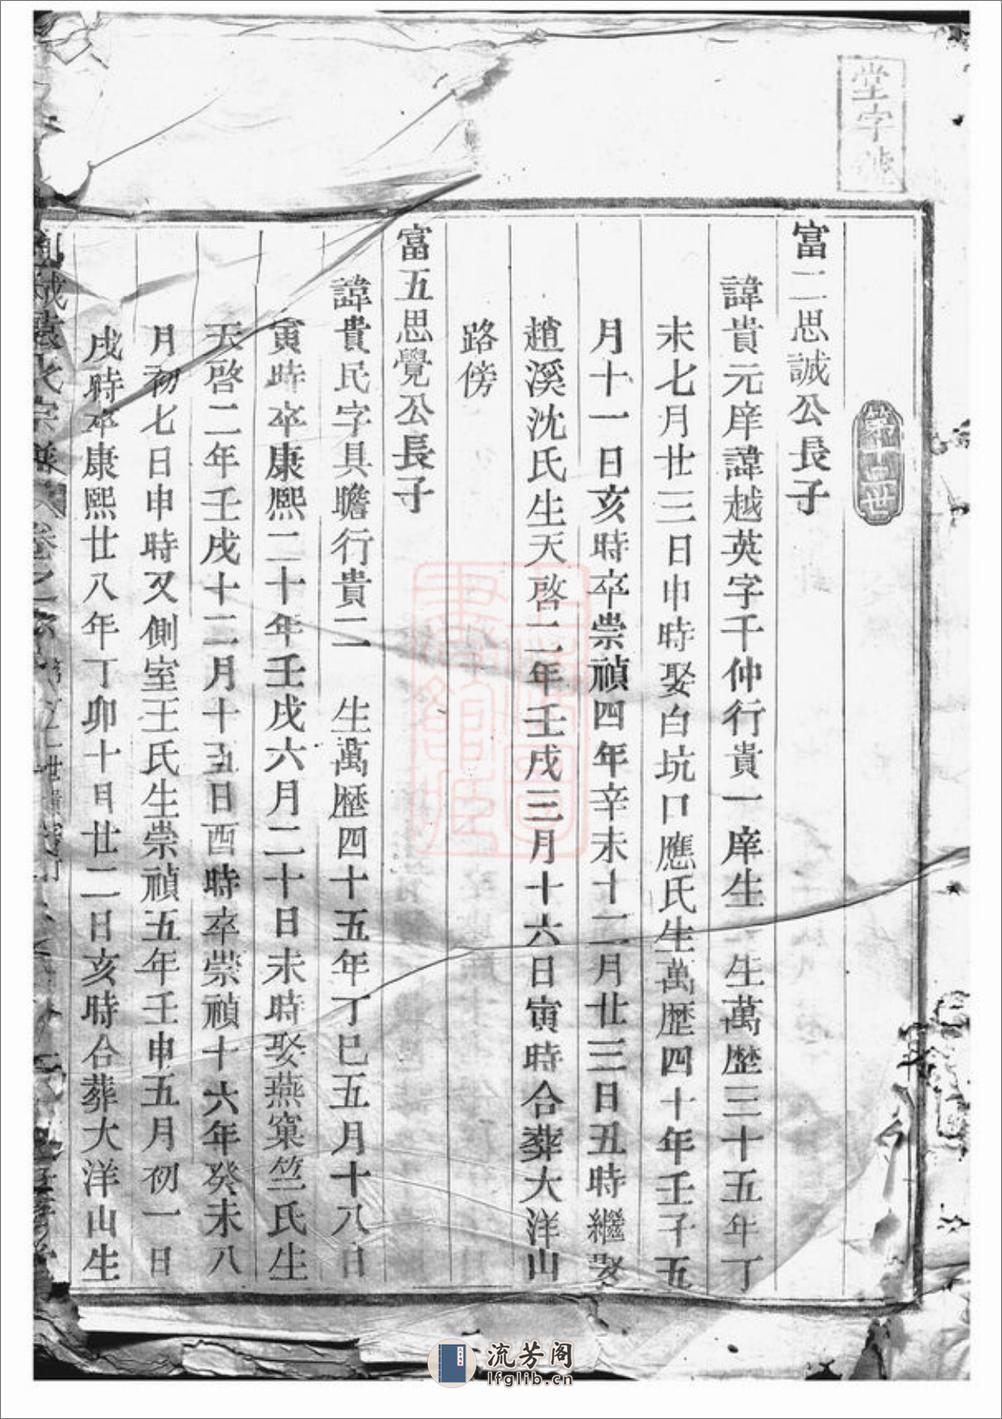 堂字號
第十二世
富二思誠公長子
諱貴元庠諱越英字千仲行貴一庠生 生萬歷三十五年丁
未七月廿三日申時娶白坑口應氏生萬歷四十年壬子五
月十一日亥時卒崇禎四年辛未十二月廿三日丑時繼娶
趙溪沈氏生天啓二年壬戌三月十六日寅時合葬大洋山
路傍
富五思覺公長子
諱貴民字具瞻行貴二 生萬歷四十五年丁巳五月十八日
寅時卒康熙二十年壬戌六月二十日未時娶燕窠竺氏生
天啓二年壬戌十二月十五日酉時卒崇禎十六年癸未八
月初七日申時又側室王氏生崇禎五年壬申五月初一日
戌時卒康熙廿八年丁卯十月廿二日亥時合葬大洋山生
卷之
流芳阁
lfglib.cn